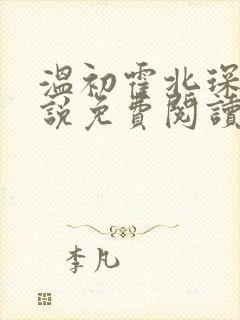 溫初霍北琛
說免費閱讀
李凡